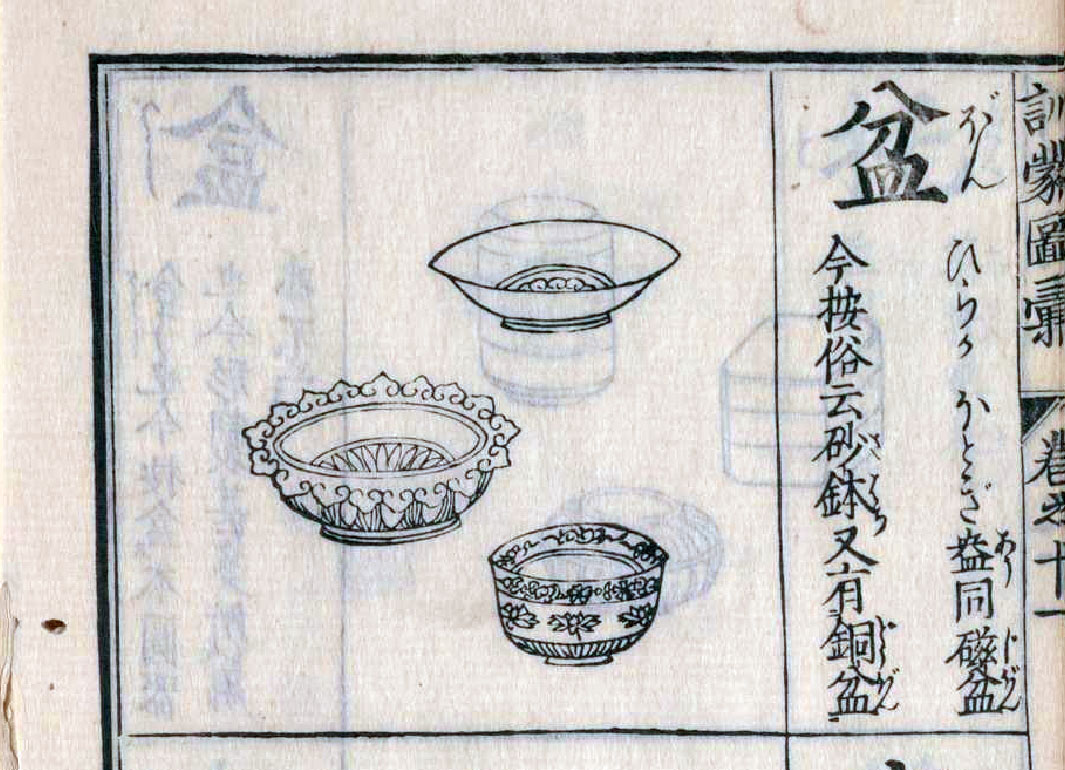 訓蒙圖彙　卷之十一
盆
ぼん
ひらか　ほとぎ　盎同　磁盆
あう　じぼん
今按俗云砂鉢又有銅盆
さはち　どうぼん